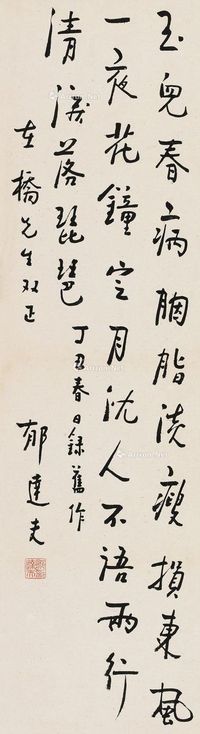 玉儿春病胭脂淡瘦損東風
一夜花鐘定月沈人不語兩行
清淚落琵琶
丁丑春日録舊作
左橋先生双正
郁達夫